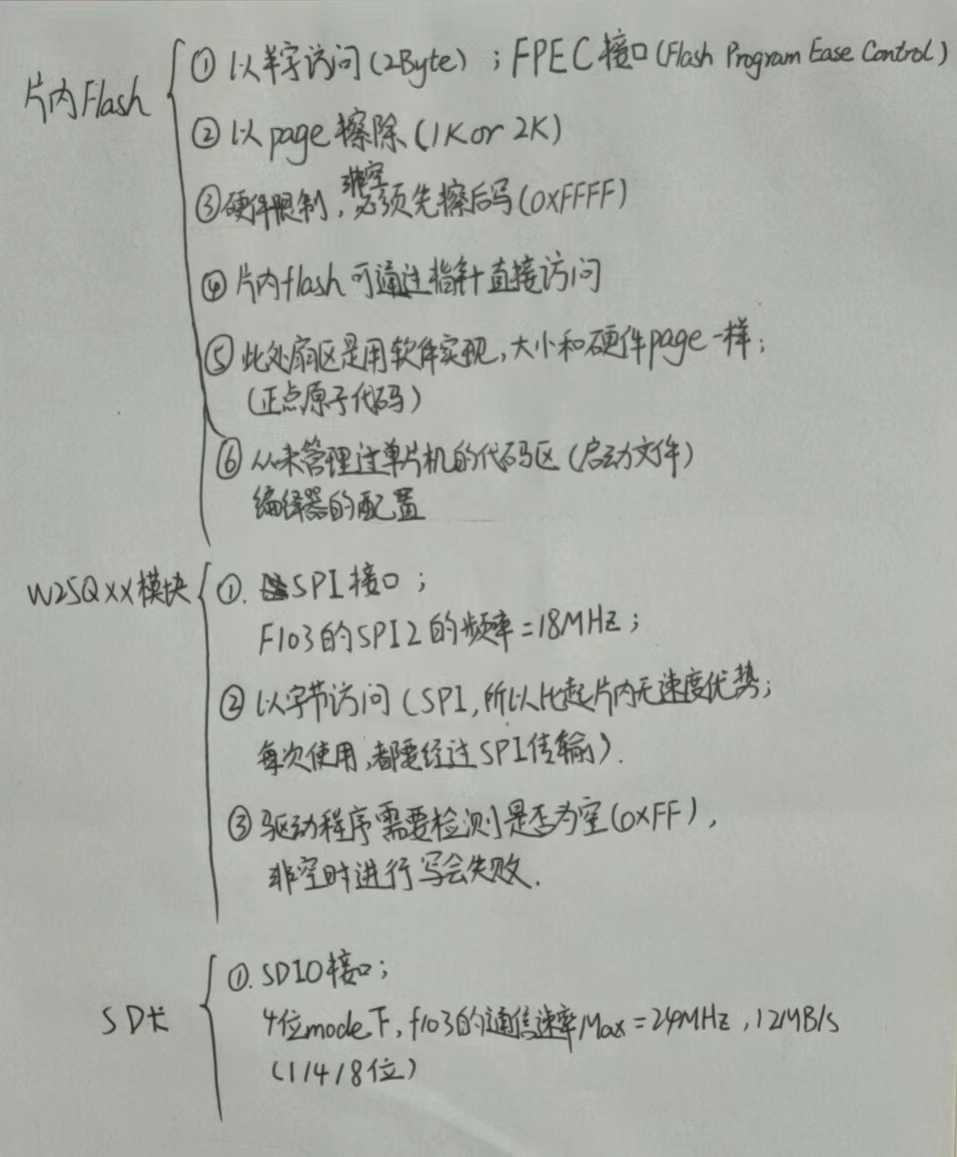 片内Flash
① 以半字访问(2Byte)；FPEC接口(Flash Program Ease Control)
② 以page擦除(1K or 2K)
非空
③硬件限制，必须先擦后写(0xFFFF)
④ 片内flash可通过指针直接访问
⑤ 此处扇区是用软件实现，大小和硬件page一样；
(正点原子代码)
⑥ 从未管理过单片机的代码区(启动文件)
编译器的配置
W25QXX模块
①. SPI接口；
F103的SPI2的频率=18MHz；
② 以字节访问(SPI,所以比起片内无速度优势；
每次使用,都要经过SPI传输).
③ 驱动程序需要检测是否为空(0xFF)，
非空时进行写会失败.
SD卡
①. SDIO接口；
4位mode下, f103的通信速率Max=24MHz, 12MB/s
(1/4/8位)